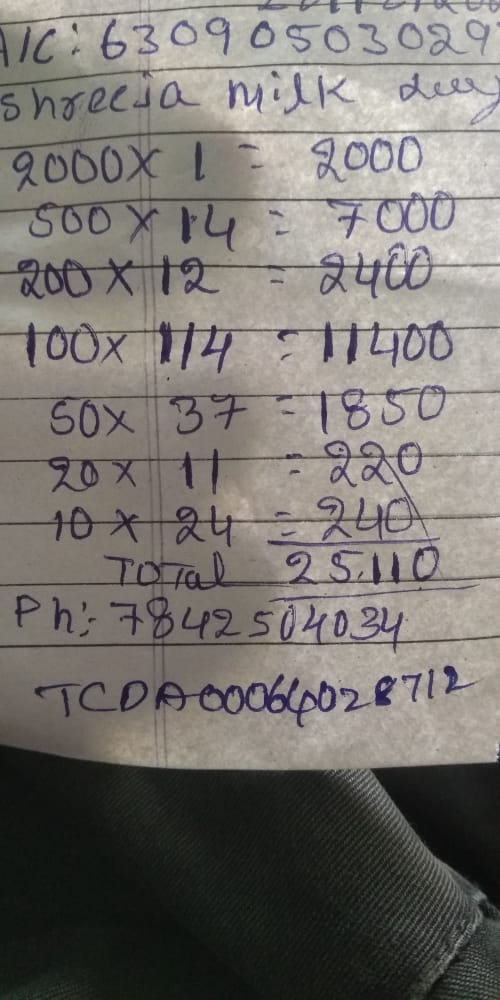 A/C: 63090503029
shreeja milk
2000 x 1 = 2000
500 x 14 = 7000
200 x 12 = 2400
100 x 114 = 11400
50 x 37 = 1850
20 x 11 = 220
10 x 24 = 240
TOTAL 25,110
Ph:- 7842504034
TCDA00064028712